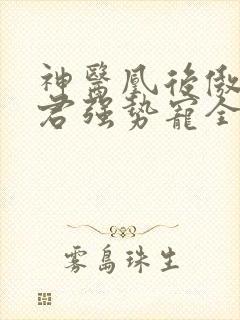 神醫鳳後傲
君強勢寵全
霧島珠生